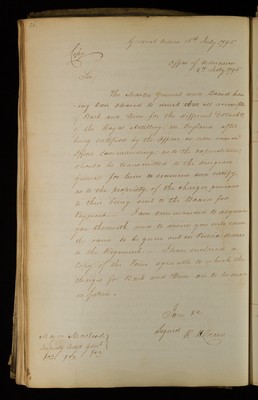 General Orders 15th July 1795
Copy
Office of Ordnance
8th July 1795
Sir,
The Master General and Board hav-
ing been pleased to direct that all accounts
of Bark and Wine for the different
of the Royal Artillery in England after
being certified by the Officer or non commis-
Officer commanding, as to the expenditure
should be transmitted to the Surgeon
General for him to examine and certify
as to the propriety of the charges previous
to their being sent to the Board for
Payment. I am commanded to acquaint
you therewith and to desire you will cause
the same to be given out in Public Orders
to the Regiment. I have enclosed a
Copy of the Form agreeable to which the
charges for Bark and Wine are to be made
in future.
I am &c
Signed
Major Macleod
Deputy Adjt Genl
&c &c &c